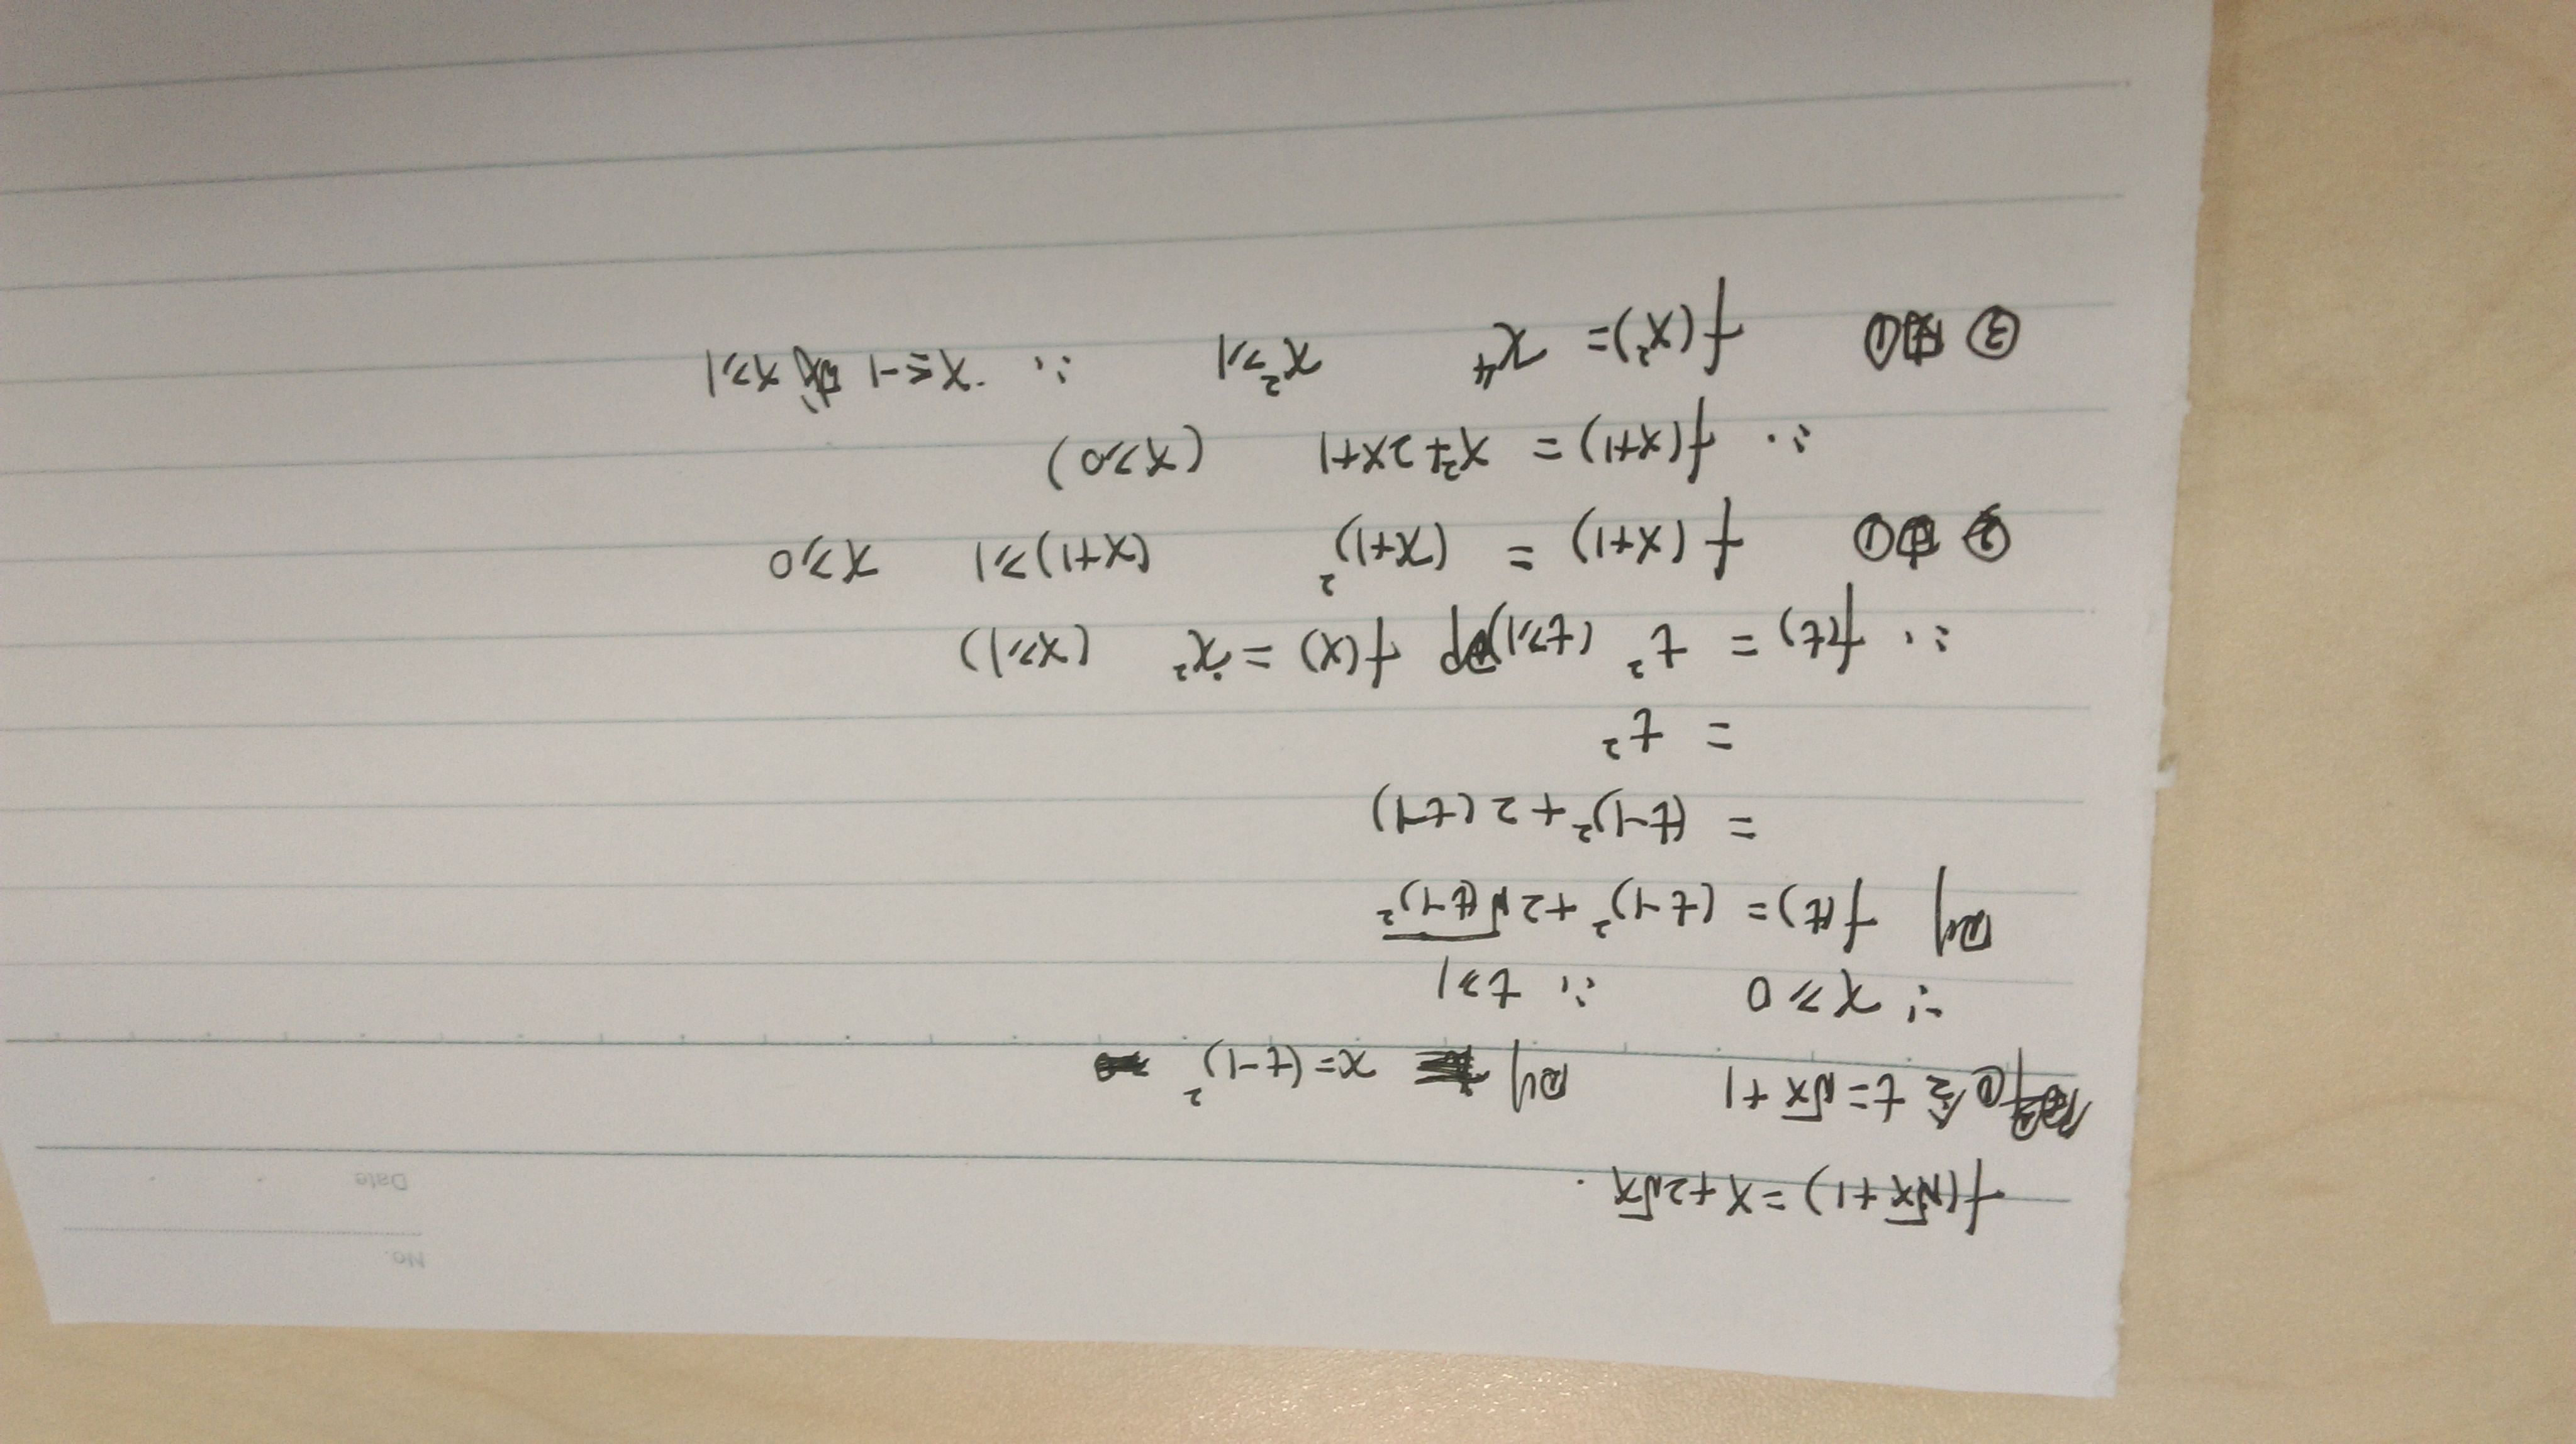 No.
Date
f(√x+1)=x+2√x.
① 令 t=√x+1 则 x=(t-1)²
∵ x≥0 ∴ t≥1
则 f(t)=(t-1)²+2√(t-1)²
=(t-1)²+2(t-1)
= t²
∴ f(t)= t² (t≥1)即 f(x)=x² (x≥1)
② 由① f(x+1) = (x+1)² (x+1)≥1 x≥0
∴ f(x+1)= x²+2x+1 (x≥0)
③ 由① f(x²)= x⁴ x²≥1 ∴ x≤-1 或 x≥1